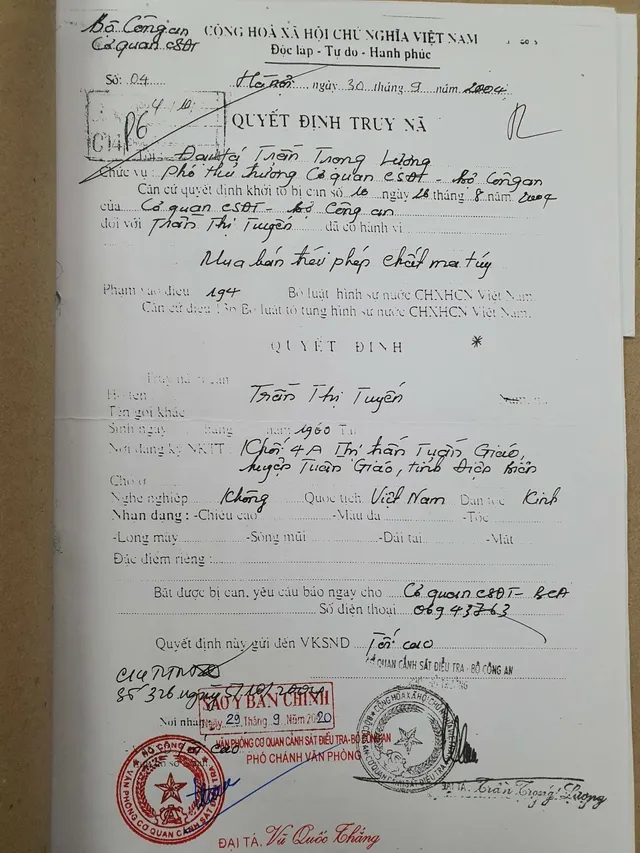 Bộ Công an
Cơ quan CSĐT
CỘNG HOÀ XÃ HỘI CHỦ NGHĨA VIỆT NAM
Độc lập - Tự do - Hạnh phúc
Số: 04
Hà Nội ngày 30 tháng 9 năm 2004
4 10
C14 P6
QUYẾT ĐỊNH TRUY NÃ
Đại tá Trần Trọng Lương
Chức vụ Phó thủ trưởng Cơ quan CSĐT - Bộ Công an
Căn cứ quyết định khởi tố bị can số 10 ngày 26 tháng 8 năm 2004
của Cơ quan CSĐT - Bộ Công an
đối với Trần Thị Tuyến đã có hành vi
Mua bán trái phép chất ma túy
Phạm vào điều 194 Bộ luật hình sự nước CHXHCN Việt Nam.
Căn cứ điều 136 Bộ luật tố tụng hình sự nước CHXHCN Việt Nam.
QUYẾT ĐỊNH
Truy nã bị can
Họ tên Trần Thị Tuyến
Tên gọi khác
Sinh ngày tháng năm 1960 Tại
Nơi đăng ký NKTT: Khối 4A Thị trấn Tuần Giáo,
huyện Tuần Giáo, tỉnh Điện Biên
Chỗ ở
Nghề nghiệp Không Quốc tịch Việt Nam Dân tộc Kinh
Nhận dạng: -Chiều cao -Màu da -Tóc
-Lông mày -Sống mũi -Dái tai -Mắt
Đặc điểm riêng:
Bắt được bị can, yêu cầu báo ngay cho Cơ quan CSĐT - BCA
Số điện thoại 069 43763
Quyết định này gửi đến VKSND Tối cao
CƠ QUAN CẢNH SÁT ĐIỀU TRA - BỘ CÔNG AN
Số 326 ngày 5/10/2004
SAO Y BẢN CHÍNH
Nơi nhận
Ngày 29 Tháng 9 Năm 2020
VĂN PHÒNG CƠ QUAN CẢNH SÁT ĐIỀU TRA-BỘ CÔNG AN
PHÓ CHÁNH VĂN PHÒNG
Đại tá Trần Trọng Lương
ĐẠI TÁ. Vũ Quốc Thắng